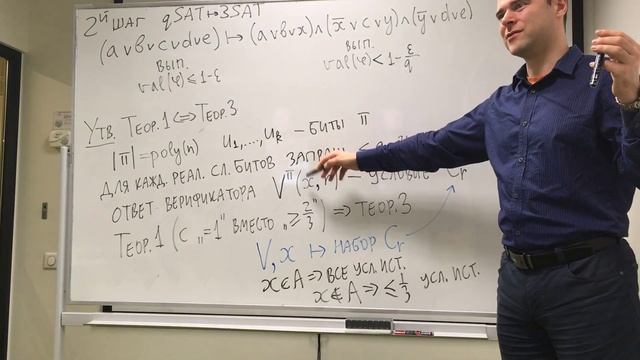 2й ШАГ qSAT ↦ 3SAT
(a∨b∨c∨d∨e) ↦ (a∨b∨x)∧(x̄∨c∨y)∧(ȳ∨d∨e)
ВЫП. val(φ)≤1-ε
ВЫП. val(φ)<1-ε/q
УТВ. ТЕОР.1 ⟺ ТЕОР.3
|π|=poly(n) U₁,...,U_k – БИТЫ π
ДЛЯ КАЖД. РЕАЛ. СЛ. БИТОВ
ОТВЕТ ВЕРИФИКАТОРА V^π(x, – УСЛОВИЕ C_r
ТЕОР.1 (С „=1" ВМЕСТО „≥2/3") ⟹ ТЕОР.3
V,x ↦ НАБОР C_r
x∈A ⟹ ВСЕ УСЛ. ИСТ.
x∉A ⟹ ≤1/3 УСЛ. ИСТ.